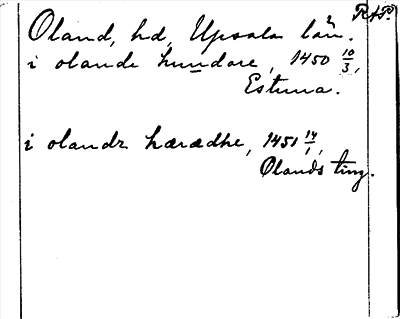 Oland, hd, Upsala län. RAP.
i olande hundare, 1450 10/3,
Estuna.
i olandz hæradhe, 1451 14/1,
Olands ting.